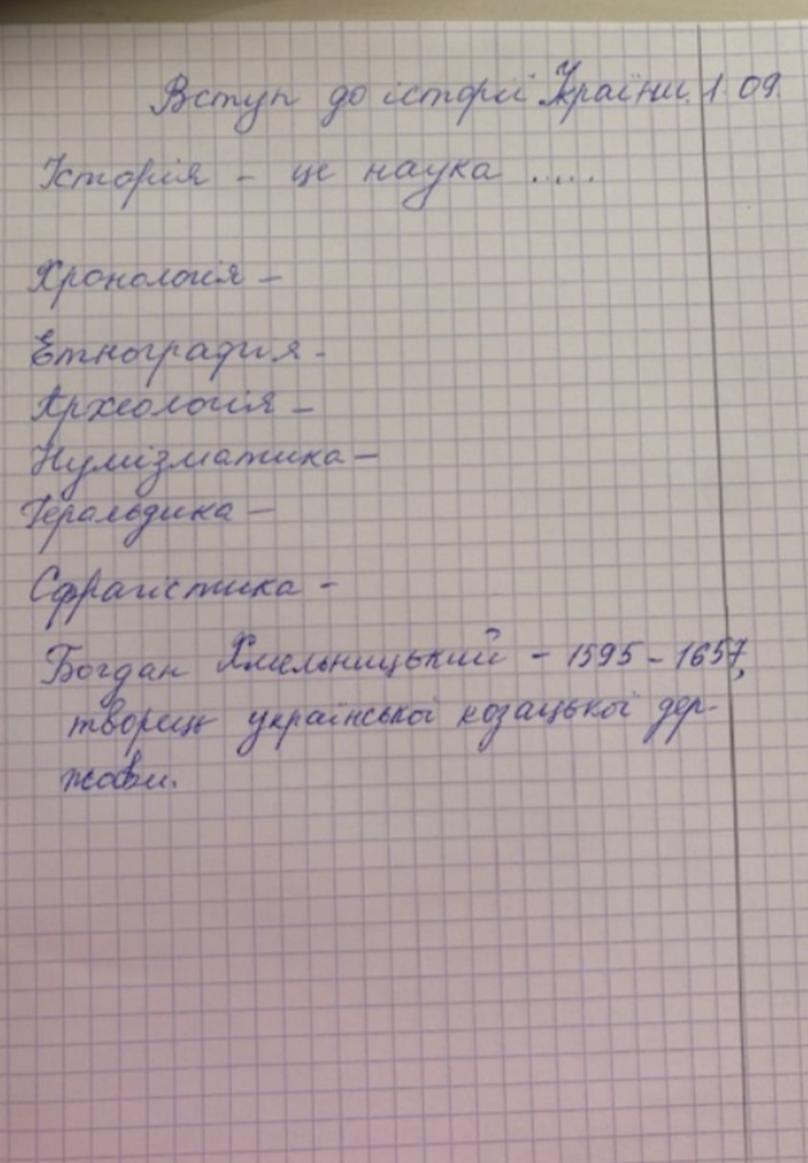 Вступ до історії України. 1 09.
Історія - це наука .....
Хронологія -
Етнографія -
Археологія -
Нумізматика -
Геральдика -
Сфрагістика -
Богдан Хмельницький - 1595 - 1657,
творець української козацької дер-
жави.